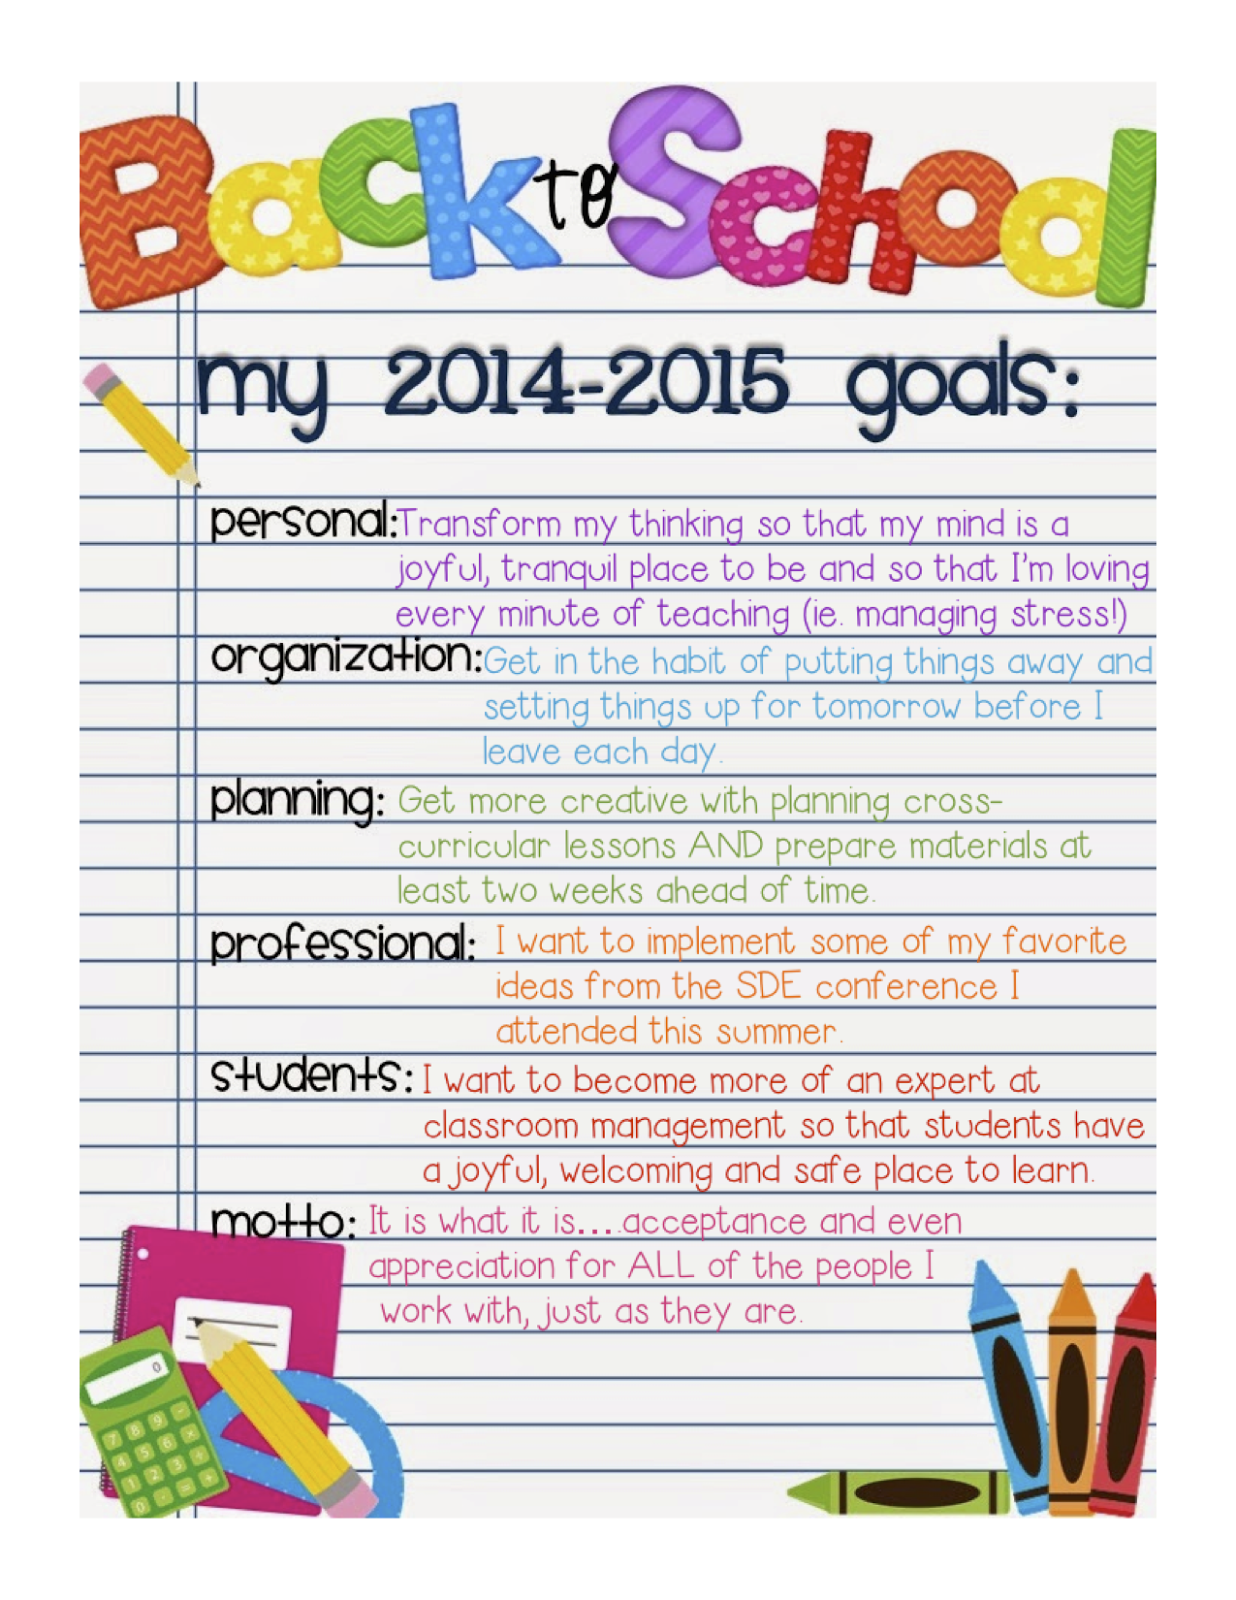 Back to School
my 2014-2015 goals:
personal: Transform my thinking so that my mind is a
joyful, tranquil place to be and so that I'm loving
every minute of teaching (ie. managing stress!)
organization: Get in the habit of putting things away and
setting things up for tomorrow before I
leave each day.
planning: Get more creative with planning cross-
curricular lessons AND prepare materials at
least two weeks ahead of time.
professional: I want to implement some of my favorite
ideas from the SDE conference I
attended this summer.
students: I want to become more of an expert at
classroom management so that students have
a joyful, welcoming and safe place to learn.
motto: It is what it is....acceptance and even
appreciation for ALL of the people I
work with, just as they are.
0
7 8 9 -
4 5 6 ×
1 2 3 ÷
0 . = +